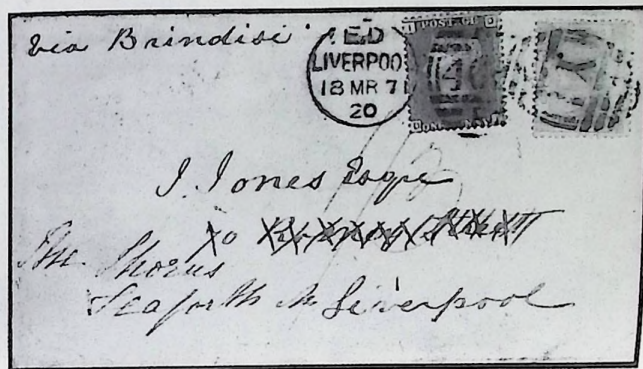 via Brindisi
LIVERPOO
18 MR 71
20
POST
J. Jones Esqr
Thorns
Seaforth Nr Liverpool